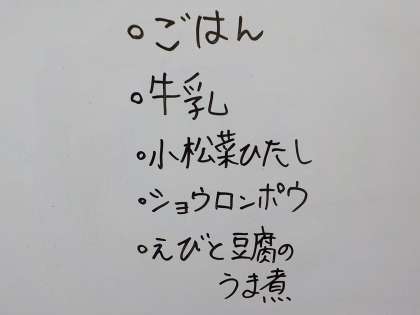 ○ごはん
○牛乳
○小松菜ひたし
○ショウロンポウ
○えびと豆腐の
うま煮